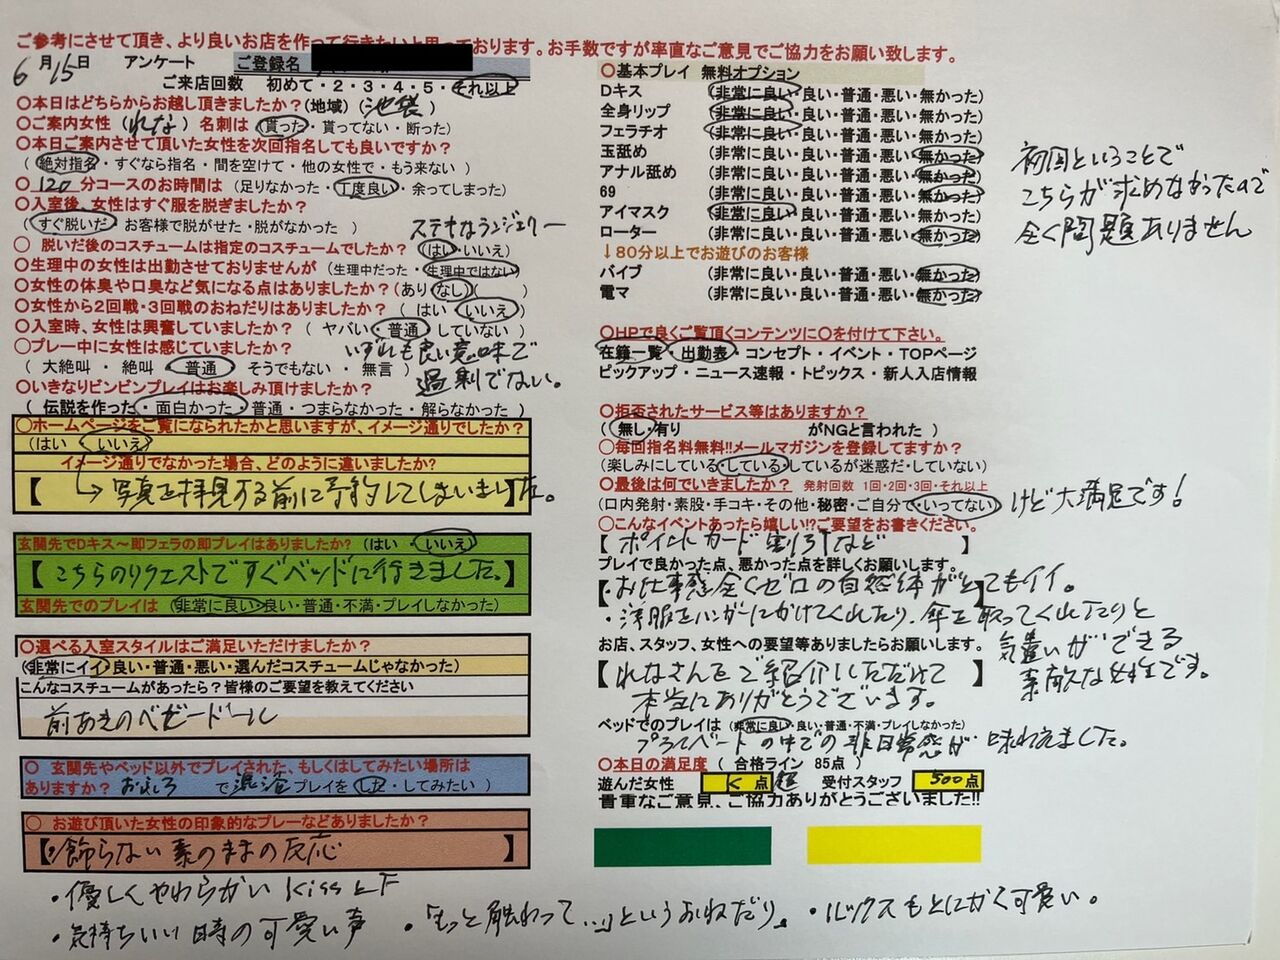 ご参考にさせて頂き、より良いお店を作って行きたいと思っております。お手数ですが率直なご意見でご協力をお願い致します。
6月15日 アンケート ご登録名
ご来店回数 初めて・2・3・4・5・それ以上
○本日はどちらからお越し頂きましたか?(地域)(池袋)
○ご案内女性(れな)名刺は(貰った・貰ってない・断った)
○本日ご案内させて頂いた女性を次回指名しても良いですか?
(絶対指名・すぐなら指名・間を空けて・他の女性で・もう来ない)
○120分コースのお時間は(足りなかった・丁度良い・余ってしまった)
○入室後、女性はすぐ服を脱ぎましたか?
(すぐ脱いだ お客様で脱がせた・脱がなかった) ステキなランジェリー
○ 脱いだ後のコスチュームは指定のコスチュームでしたか?(はい・いいえ)
○生理中の女性は出勤させておりませんが(生理中だった・生理中ではない)
○女性の体臭や口臭など気になる点はありましたか?(あり なし( )
○女性から2回戦・3回戦のおねだりはありましたか?( はい・いいえ )
○入室時、女性は興奮していましたか?( ヤバい・普通 していない )
○プレー中に女性は感じていましたか? いずれも良い意味で
( 大絶叫 ・ 絶叫 ・ 普通 そうでもない ・ 無言 ) 過剰でない。
○いきなりビンビンプレイはお楽しみ頂けましたか?
( 伝説を作った・面白かった・普通・つまらなかった・解らなかった )
○ホームページをご覧になられたかと思いますが、イメージ通りでしたか?
(はい いいえ)
イメージ通りでなかった場合、どのように違いましたか?
【→写真を拝見する前に予約してしまいました。】
玄関先でDキス~即フェラの即プレイはありましたか?(はい いいえ)
【こちらのリクエストですぐベッドに行きました。】
玄関先でのプレイは(非常に良い 良い・普通・不満・プレイしなかった)
○選べる入室スタイルはご満足いただけましたか?
(非常にイイ 良い・普通・悪い・選んだコスチュームじゃなかった)
こんなコスチュームがあったら?皆様のご要望を教えてください
前あきのベビードール
○ 玄関先やベッド以外でプレイされた、もしくはしてみたい場所は
ありますか? おふろ で混浴プレイを(した・してみたい)
○ お遊び頂いた女性の印象的なプレーなどありましたか?
【・飾らない素のままの反応】
・優しくやわらかいKissとF
・気持ちいい時の可愛い声 ・「もっと触わって…」というおねだり。 ・ルックスもとにかく可愛い。
○基本プレイ 無料オプション
Dキス (非常に良い・良い・普通・悪い・無かった)
全身リップ (非常に良い・良い・普通・悪い・無かった)
フェラチオ (非常に良い・良い・普通・悪い・無かった)
玉舐め (非常に良い・良い・普通・悪い・無かった)
アナル舐め (非常に良い・良い・普通・悪い・無かった)
69 (非常に良い・良い・普通・悪い・無かった)
アイマスク (非常に良い・良い・普通・悪い・無かった)
ローター (非常に良い・良い・普通・悪い・無かった)
初回ということで
こちらが求めなかったので
全く問題ありません
↓80分以上でお遊びのお客様
バイブ (非常に良い・良い・普通・悪い・無かった)
電マ (非常に良い・良い・普通・悪い・無かった)
○HPで良くご覧頂くコンテンツに○を付けて下さい。
在籍一覧・出勤表・コンセプト・イベント・TOPページ
ピックアップ・ニュース速報・トピックス・新人入店情報
○拒否されたサービス等はありますか?
(無し・有り がNGと言われた )
○毎回指名料無料!!メールマガジンを登録してますか?
(楽しみにしている・している・しているが迷惑だ・していない)
○最後は何でいきましたか? 発射回数 1回・2回・3回・それ以上
(口内発射・素股・手コキ・その他・秘密・ご自分で・いってない) けど大満足です!
○こんなイベントあったら嬉しい!?ご要望をお書きください。
【 ポイントカード割引など 】
プレイで良かった点、悪かった点を詳しくお願いします。
【・お仕事感全くゼロの自然体がとてもイイ。
・洋服をハンガーにかけてくれたり、傘を取ってくれたりと
お店、スタッフ、女性への要望等ありましたらお願いします。 気遣いができる
素敵な女性です。
【れなさんをご紹介いただけて
本当にありがとうございます。】
ベッドでのプレイは (非常に良い・良い・普通・不満・プレイしなかった)
プライベートの中での非日常感が味わえました。
○本日の満足度 ( 合格ライン 85点)
遊んだ女性 点 超 受付スタッフ 500点
貴重なご意見、ご協力ありがとうございました!!